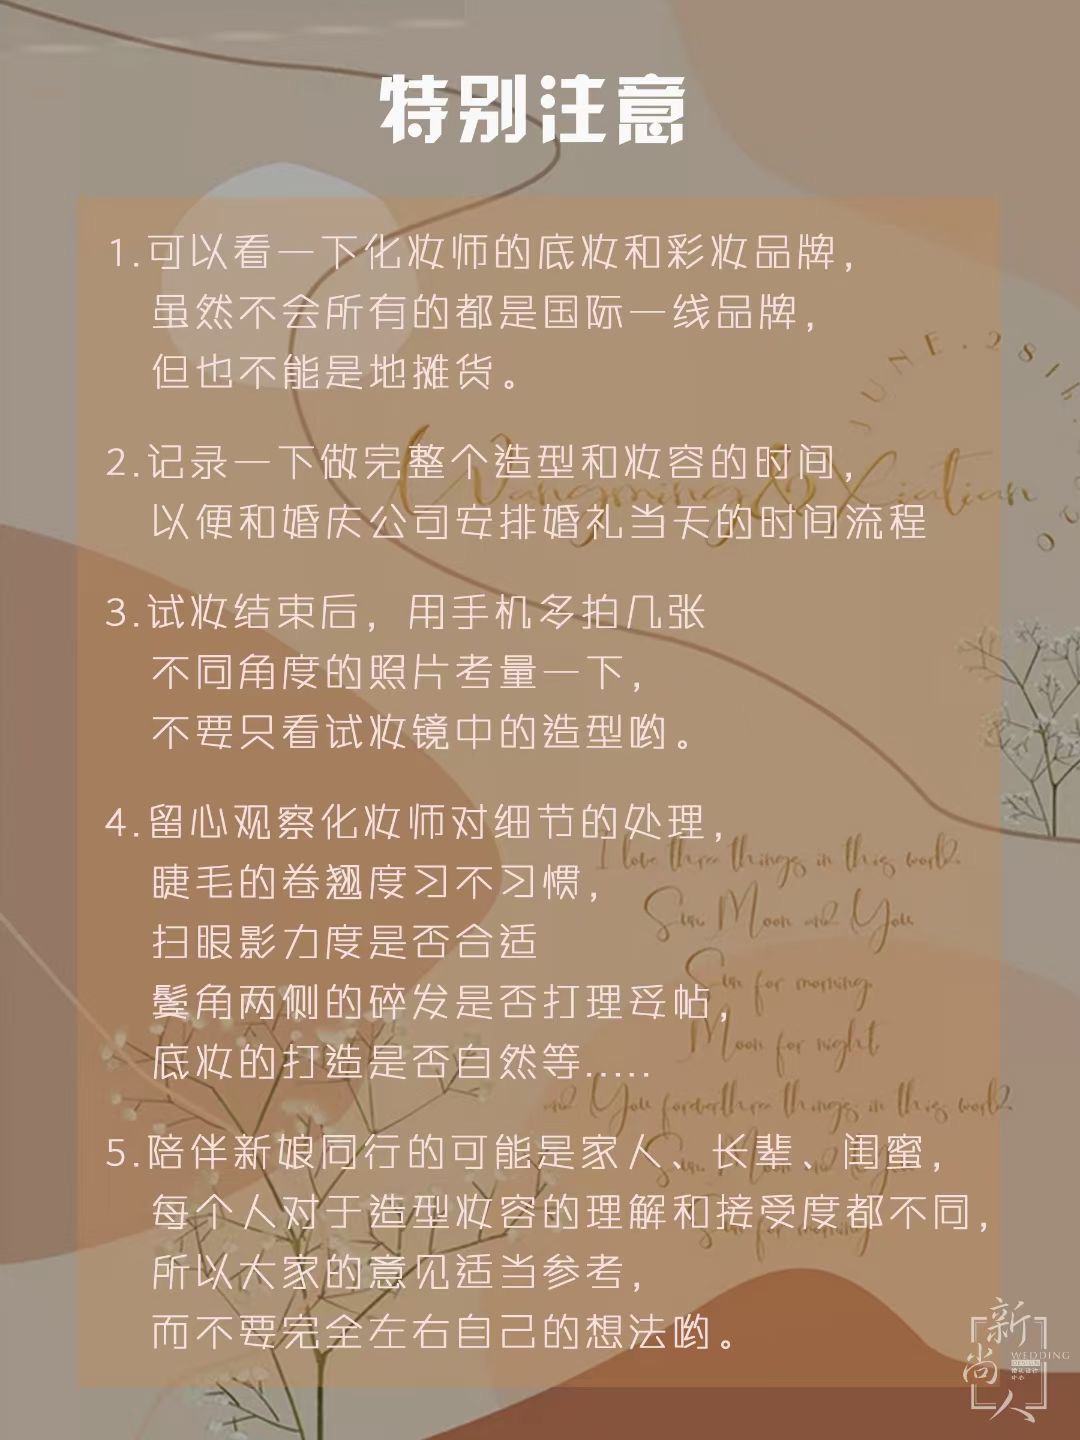 特别注意
1.可以看一下化妆师的底妆和彩妆品牌，
虽然不会所有的都是国际一线品牌，
但也不能是地摊货。
JUNE.28th.
Wangming&Xiatian
2.记录一下做完整个造型和妆容的时间，
以便和婚庆公司安排婚礼当天的时间流程
3.试妆结束后，用手机多拍几张
不同角度的照片考量一下，
不要只看试妆镜中的造型哟。
4.留心观察化妆师对细节的处理，
睫毛的卷翘度习不习惯，
扫眼影力度是否合适
鬓角两侧的碎发是否打理妥帖，
底妆的打造是否自然等.....
I love three things in this world.
Sun, Moon and You
Sun for morning,
Moon for night,
and You foreverthree things in this world.
Sun, Moon and You
Sun for morning
5.陪伴新娘同行的可能是家人、长辈、闺蜜，
每个人对于造型妆容的理解和接受度都不同，
所以大家的意见适当参考，
而不要完全左右自己的想法哟。
新尚人
WEDDING
DESIGN